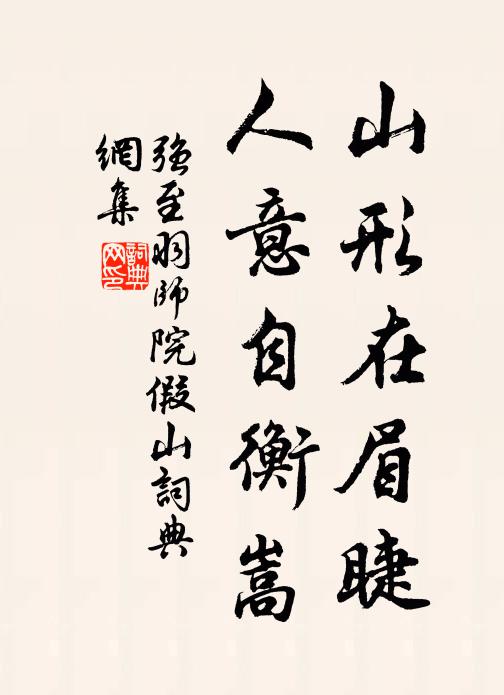 山形在眉睫
人意自衡嵩
強至羽師院假山詞典
網集
詞典
网印